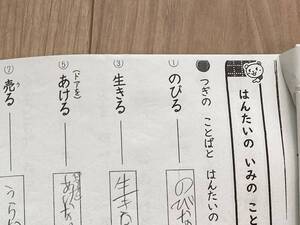 はんたいの いみの こと
つぎの ことばと はんたいの
① のびる
のびな
③ 生きる
生きな
⑤ (ドアを) あける
⑦ 売る
う
うら